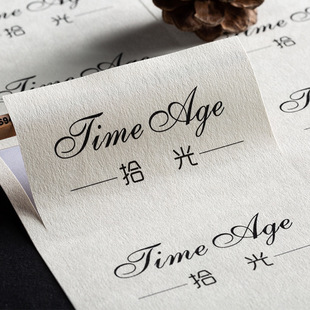 Time Age
拾 光
Time Age
拾 光